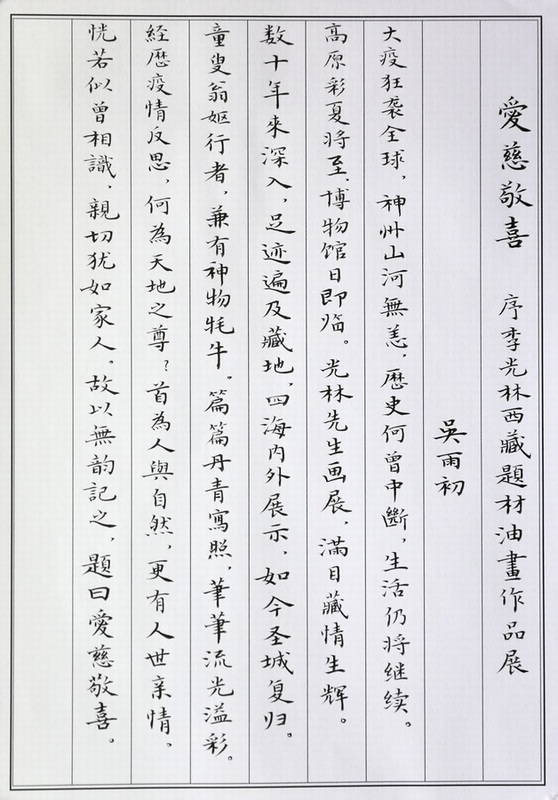 愛慈敬喜　序李光林西藏題材油畫作品展
吳雨初
大疫狂袭全球，神州山河無恙，歷史何曾中斷，生活仍将继续。
高原彩夏将至，博物馆日即临。光林先生画展，滿目藏情生辉。
数十年來深入，足迹遍及藏地，四海内外展示，如今圣城复归。
童叟翁妪行者，兼有神物牦牛。篇篇丹青寫照，筆筆流光溢彩。
経歷疫情反思，何為天地之尊？首為人與自然，更有人世亲情。
恍若似曾相識，親切犹如家人。故以無韵記之，題曰愛慈敬喜。